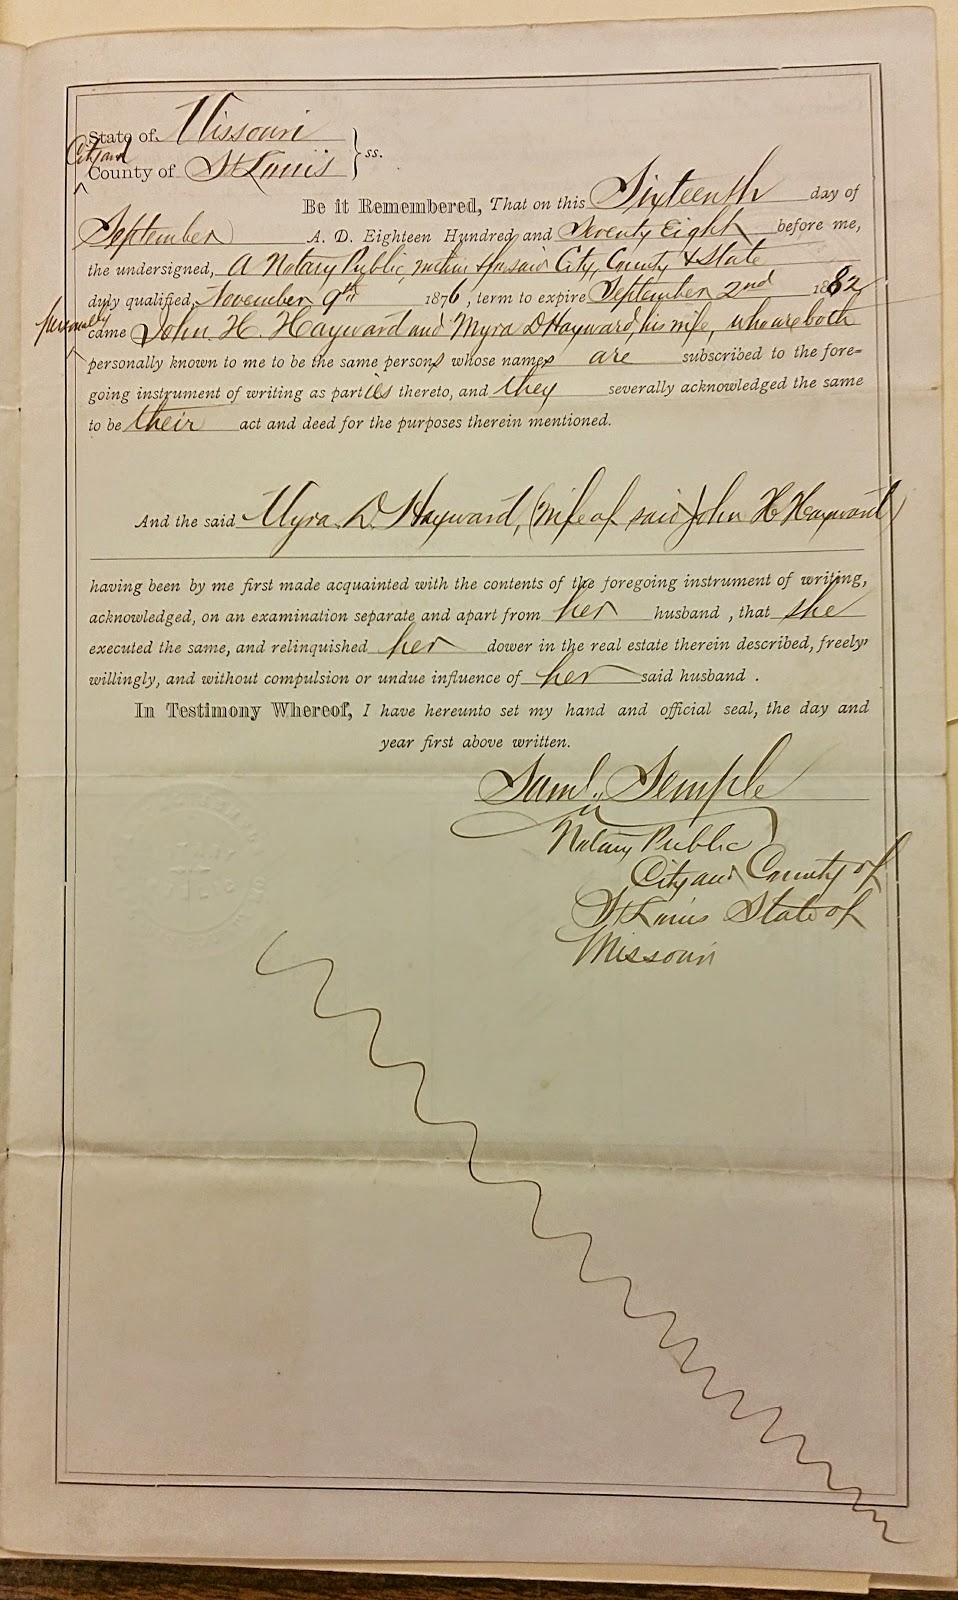 State of Missouri
City and
County of St Louis } ss.
Be it Remembered, That on this Sixteenth day of
September A. D. Eighteen Hundred and Seventy Eight before me,
the undersigned, A Notary Public, within & for said City, County & State
duly qualified, November 9th 1876, term to expire September 2nd 1882
personally came John H. Hayward and Myra D Hayward, his wife, who are both
personally known to me to be the same persons whose names are subscribed to the fore-
going instrument of writing as parties thereto, and they severally acknowledged the same
to be their act and deed for the purposes therein mentioned.
And the said Myra D. Hayward, (wife of said John H Hayward)
having been by me first made acquainted with the contents of the foregoing instrument of writing,
acknowledged, on an examination separate and apart from her husband, that she
executed the same, and relinquished her dower in the real estate therein described, freely
willingly, and without compulsion or undue influence of her said husband.
In Testimony Whereof, I have hereunto set my hand and official seal, the day and
year first above written.
Saml. Semple
Notary Public
City and County of
St Louis State of
Missouri